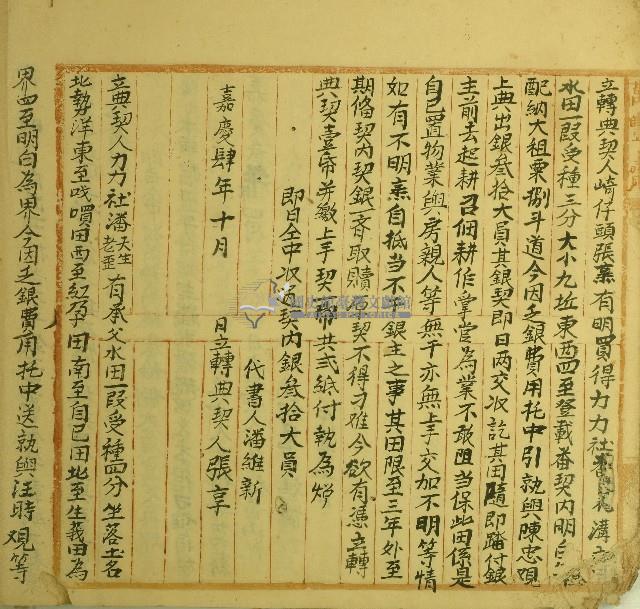 立轉典契人崎仔頭張㷛有明買得力力社番 溝
水田一叚受種三分大小九坵東西四至登載番契內明白
配納大租粟捌斗道今因乏銀費用托中引就與陳忠覌
上典出銀叁拾大員其銀契即日两交收訖其田隨即踏付銀
主前去起耕召佃耕作掌管為業不敢阻当保此田係是
自己置物業與房親人等無干亦無上手交加不明等情
如有不明㷛自抵当不 銀主之事其田限至三年外至
期俻契內契銀一齊取贖 契不得刁难今欲有憑立轉
典契壹帋并繳上手契 帋共弍紙付執為炤
即日仝中收過契內銀叁拾大員
代書人潘維新
嘉慶肆年十月 日立轉典契人張享
立典契人力力社潘天生老歪有承父水田一叚受種四分坐落土名
北勢洋東至 嘪田西至紅孕田南至自己田北至生義田為
界四至明白為界今因乏銀費用托中送就與汪時覌等
國史館臺灣文獻館
TAIWAN HISTORICA